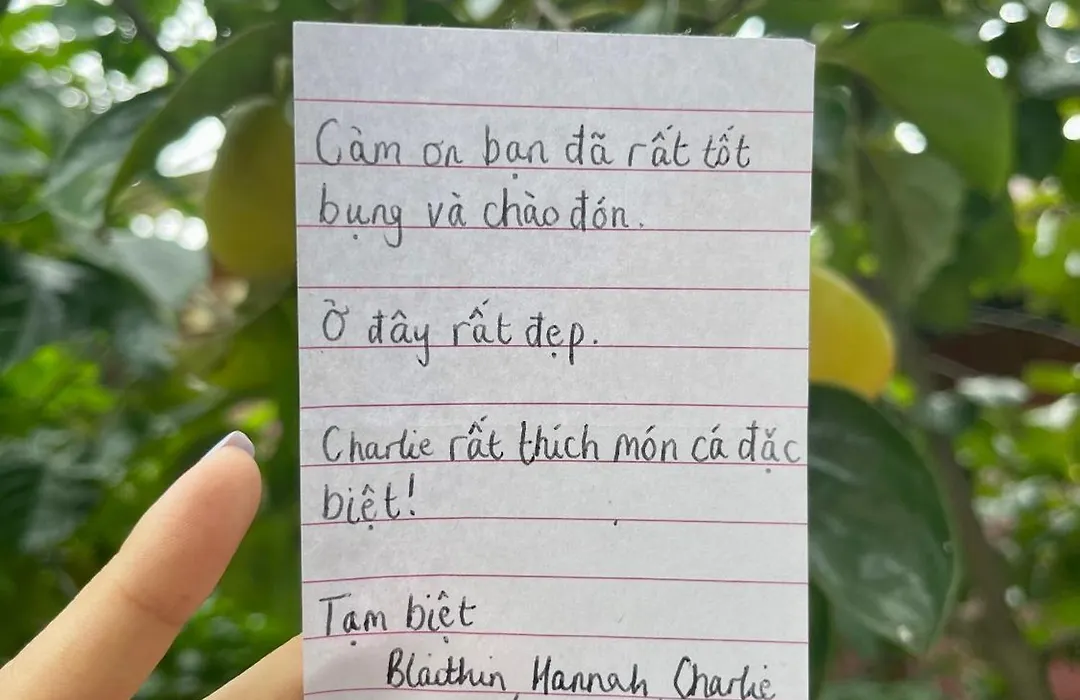 Cảm ơn bạn đã rất tốt
bụng và chào đón.
Ở đây rất đẹp.
Charlie rất thích món cá đặc
biệt!
Tạm biệt
Bláithín Hannah Charlie